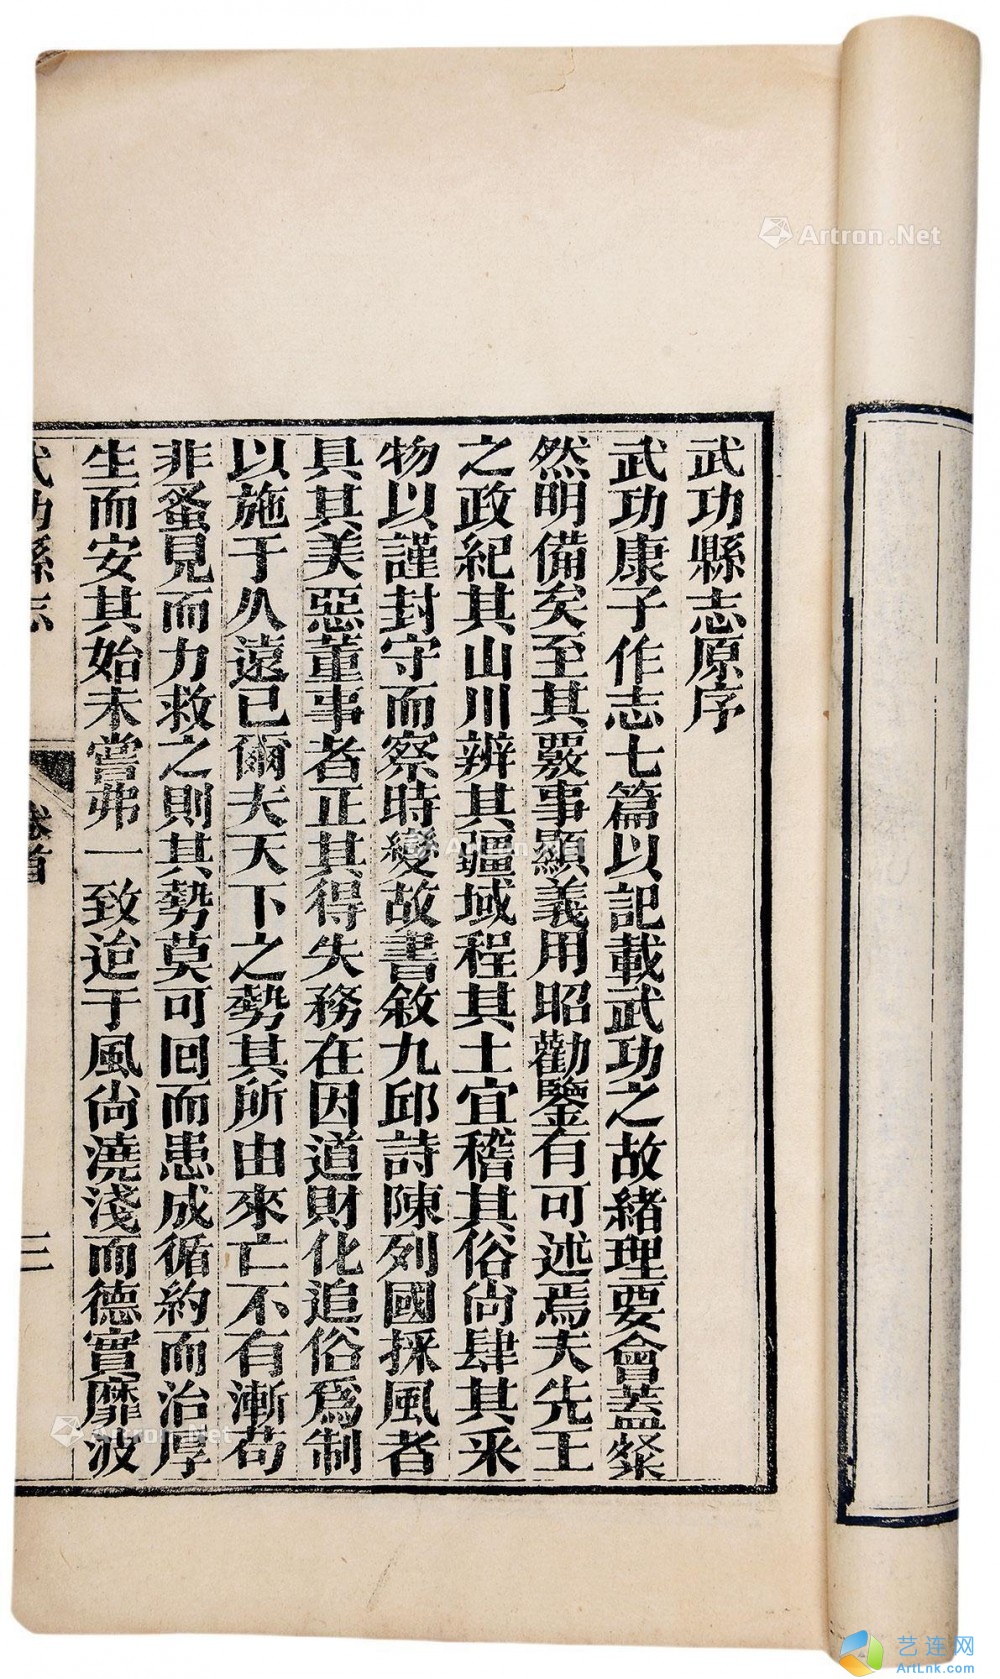 武功縣志原序
武功康子作志七篇以記載武功之故緒理要會蓋粲
然明備矣至其覈事顯義用昭勸鑒有可述焉夫先王
之政紀其山川辨其疆域程其土宜稽其俗尙肆其采
物以謹封守而察時變故書敘九邱詩陳列國採風者
具其美惡董事者正其得失務在因道財化追俗爲制
以施于久遠已爾夫天下之勢其所由來亡不有漸苟
非蚤見而力救之則其勢莫可回而患成循約而治厚
生而安其始未嘗弗一致迨于風尙澆淺而德實靡波
武功縣志
卷首
三
Artron.Net
Artron.Net
Artron.Net
艺连网
ArtLnk.com